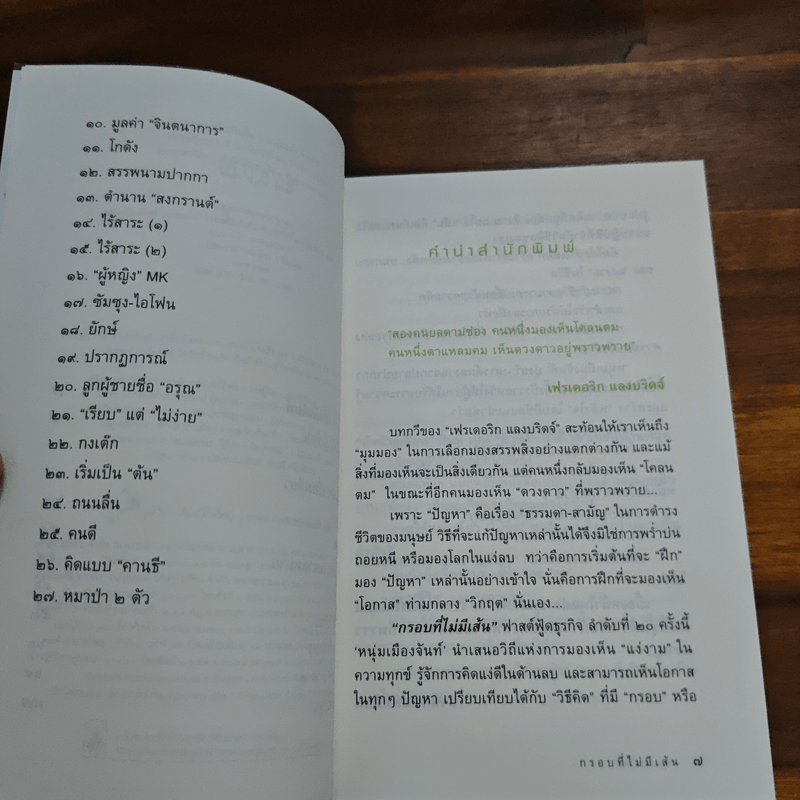 ๑๐. มูลค่า “จินตนาการ”
๑๑. โกดัง
๑๒. สรรพนามปากกา
๑๓. ตำนาน “สงกรานต์”
๑๔. ไร้สาระ (๑)
๑๕. ไร้สาระ (๒)
๑๖. “ผู้หญิง” MK
๑๗. ซัมซุง-ไอโฟน
๑๘. ยักษ์
๑๙. ปรากฏการณ์
๒๐. ลูกผู้ชายชื่อ “อรุณ”
๒๑. “เรียบ” แต่ “ไม่ง่าย”
๒๒. กงเต๊ก
๒๓. เริ่มเป็น “ต้น”
๒๔. ถนนลื่น
๒๕. คนดี
๒๖. คิดแบบ “คานธี”
๒๗. หมาป่า ๒ ตัว
คำนำสำนักพิมพ์
“สองคนยลตามช่อง คนหนึ่งมองเห็นโคลนตม
คนหนึ่งตาแหลมคม เห็นดวงดาวอยู่พราวพราย”
เฟรเดอริก แลงบริดจ์
บทกวีของ “เฟรเดอริก แลงบริดจ์” สะท้อนให้เราเห็นถึง
“มุมมอง” ในการเลือกมองสรรพสิ่งอย่างแตกต่างกัน และแม้
สิ่งที่มองเห็นจะเป็นสิ่งเดียวกัน แต่คนหนึ่งกลับมองเห็น “โคลน
ตม” ในขณะที่อีกคนมองเห็น “ดวงดาว” ที่พราวพราย...
เพราะ “ปัญหา” คือเรื่อง “ธรรมดา-สามัญ” ในการดำรง
ชีวิตของมนุษย์ วิธีที่จะแก้ปัญหาเหล่านั้นได้จึงมิใช่การพร่ำบ่น
ถอยหนี หรือมองโลกในแง่ลบ ทว่าคือการเริ่มต้นที่จะ “ฝึก”
มอง “ปัญหา” เหล่านั้นอย่างเข้าใจ นั่นคือการฝึกที่จะมองเห็น
“โอกาส” ท่ามกลาง “วิกฤต” นั่นเอง...
“กรอบที่ไม่มีเส้น” ฟาสต์ฟู้ดธุรกิจ ลำดับที่ ๒๐ ครั้งนี้
‘หนุ่มเมืองจันท์’ นำเสนอวิถีแห่งการมองเห็น “แง่งาม” ใน
ความทุกข์ รู้จักการคิดแง่ดีในด้านลบ และสามารถเห็นโอกาส
ในทุกๆ ปัญหา เปรียบเทียบได้กับ “วิธีคิด” ที่มี “กรอบ” หรือ
กรอบที่ไม่มีเส้น ๗